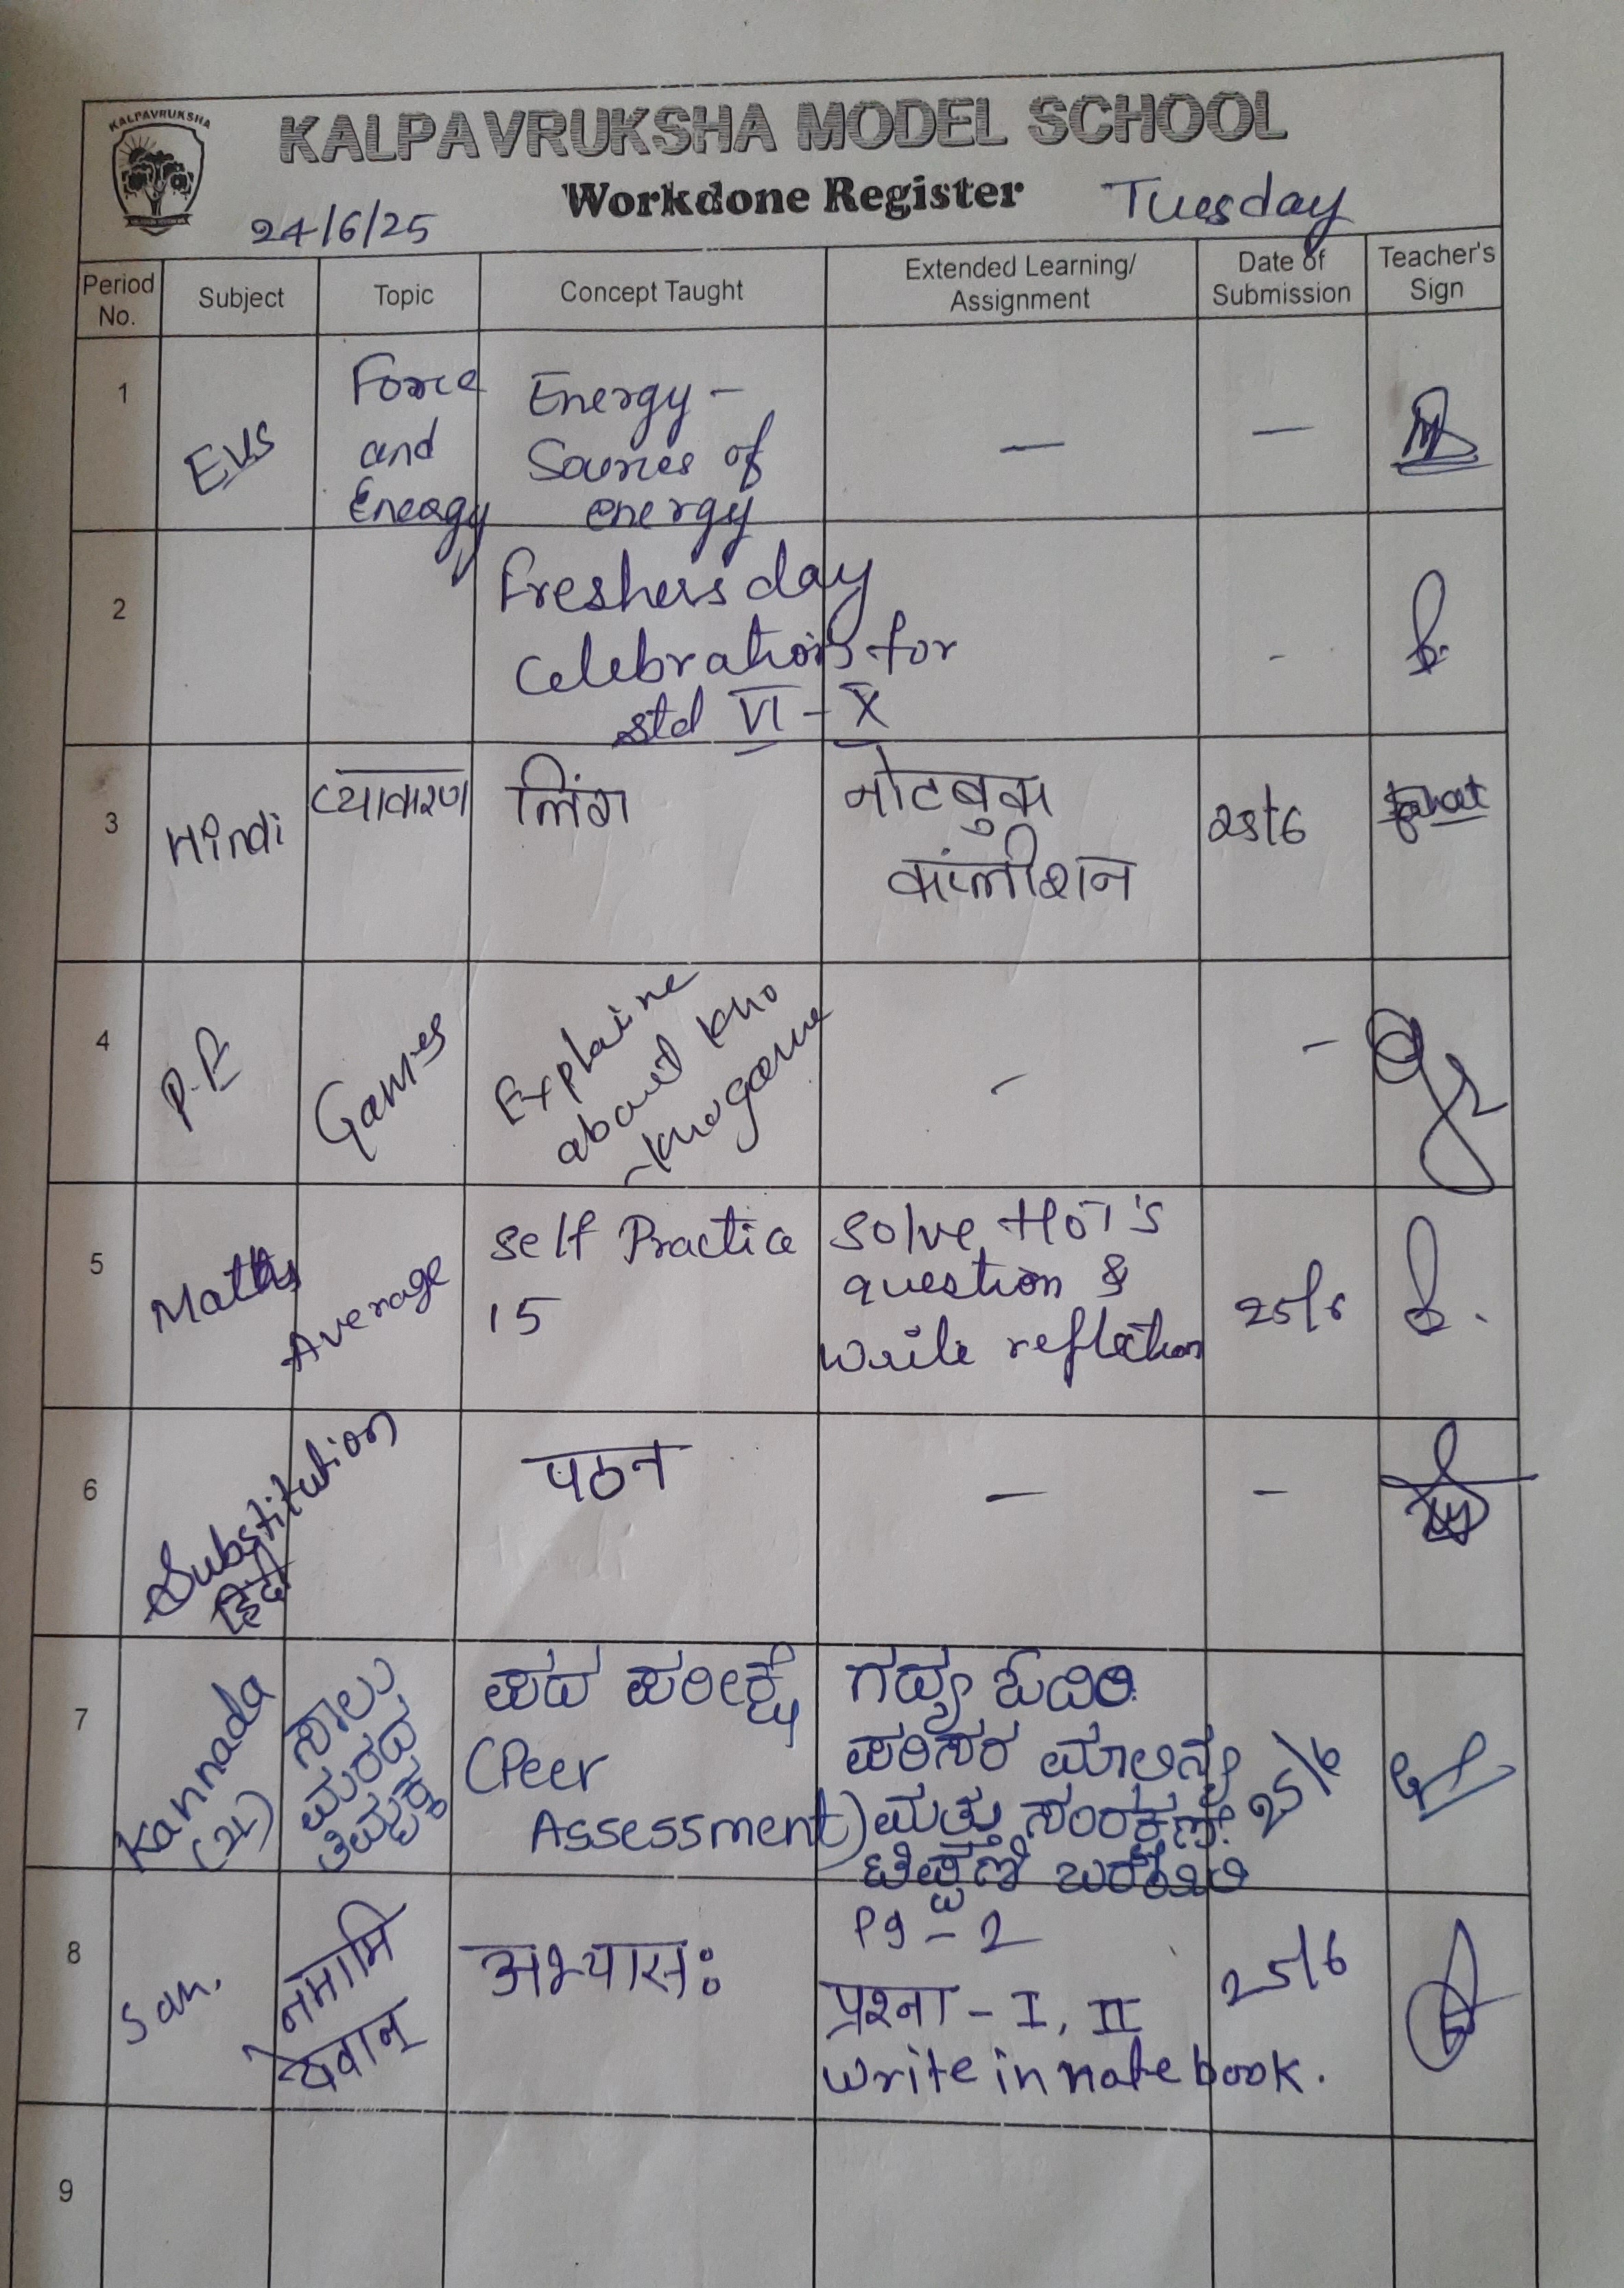 KALPAVRUKSHA
KALPAVRUKSHA MODEL SCHOOL
Workdone Register
Tuesday
24/6/25
Period No.
Subject
Topic
Concept Taught
Extended Learning/
Assignment
Date of
Submission
Teacher's
Sign
1
EVS
Force
and
Energy
Energy -
Sources of
energy
—
—
2
Freshers day
celebrations for
std VI - X
-
3
Hindi
व्याकरण
लिंग
नोटबुक
कंप्लीशन
25/6
4
P.E
Games
Explaine
about kho
-kho game
-
-
5
Maths
Average
Self Practice
15
Solve HOT's
question &
write reflection
25/6
6
Substitution
हिंदी
पठन
—
-
7
Kannada
(2L)
ಸಾಲು
ಮರದ
ತಿಮ್ಮಕ್ಕ
ಪದ ಪರೀಕ್ಷೆ
(Peer
Assessment)
ಗದ್ಯ ಓದಿರಿ.
ಪರಿಸರ ಮಾಲಿನ್ಯ
ಮತ್ತು ಸಂರಕ್ಷಣೆ
ಟಿಪ್ಪಣಿ
25/6
8
San.
नमामि
देवान्
अभ्यासः
Pg - 2
प्रश्ना - I, II
write in note book.
25/6
9